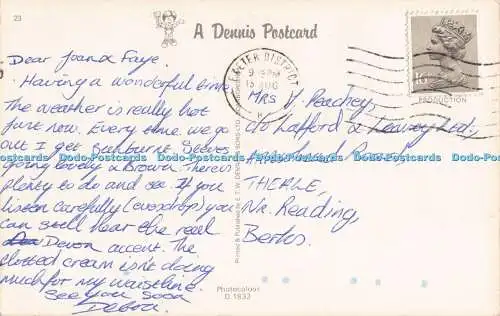 23
A Dennis Postcard
Dear Joan & Faye,
Having a wonderful time
The weather is really hot
just now. Every time we go
out I get sunburnt. Steves
going lovely & brown. There's
plenty to do and see. If you
listen carefully (evesdrop) you
can still hear the real
Devon accent. The
clotted cream isn't doing
much for my waistline.
See you soon
Debra.
EXETER DISTRICT
9 - PM
15 AUG
PRODUCTION
Mrs V. Peachey,
c/o Lafford & Leavey Ltd.,
THEALE,
Nr. Reading,
Berks.
Photocolour
D.1832
Dodo-Postcards Dodo-Postcards Dodo-Postcards Dodo-Postcards Dodo-Postcards